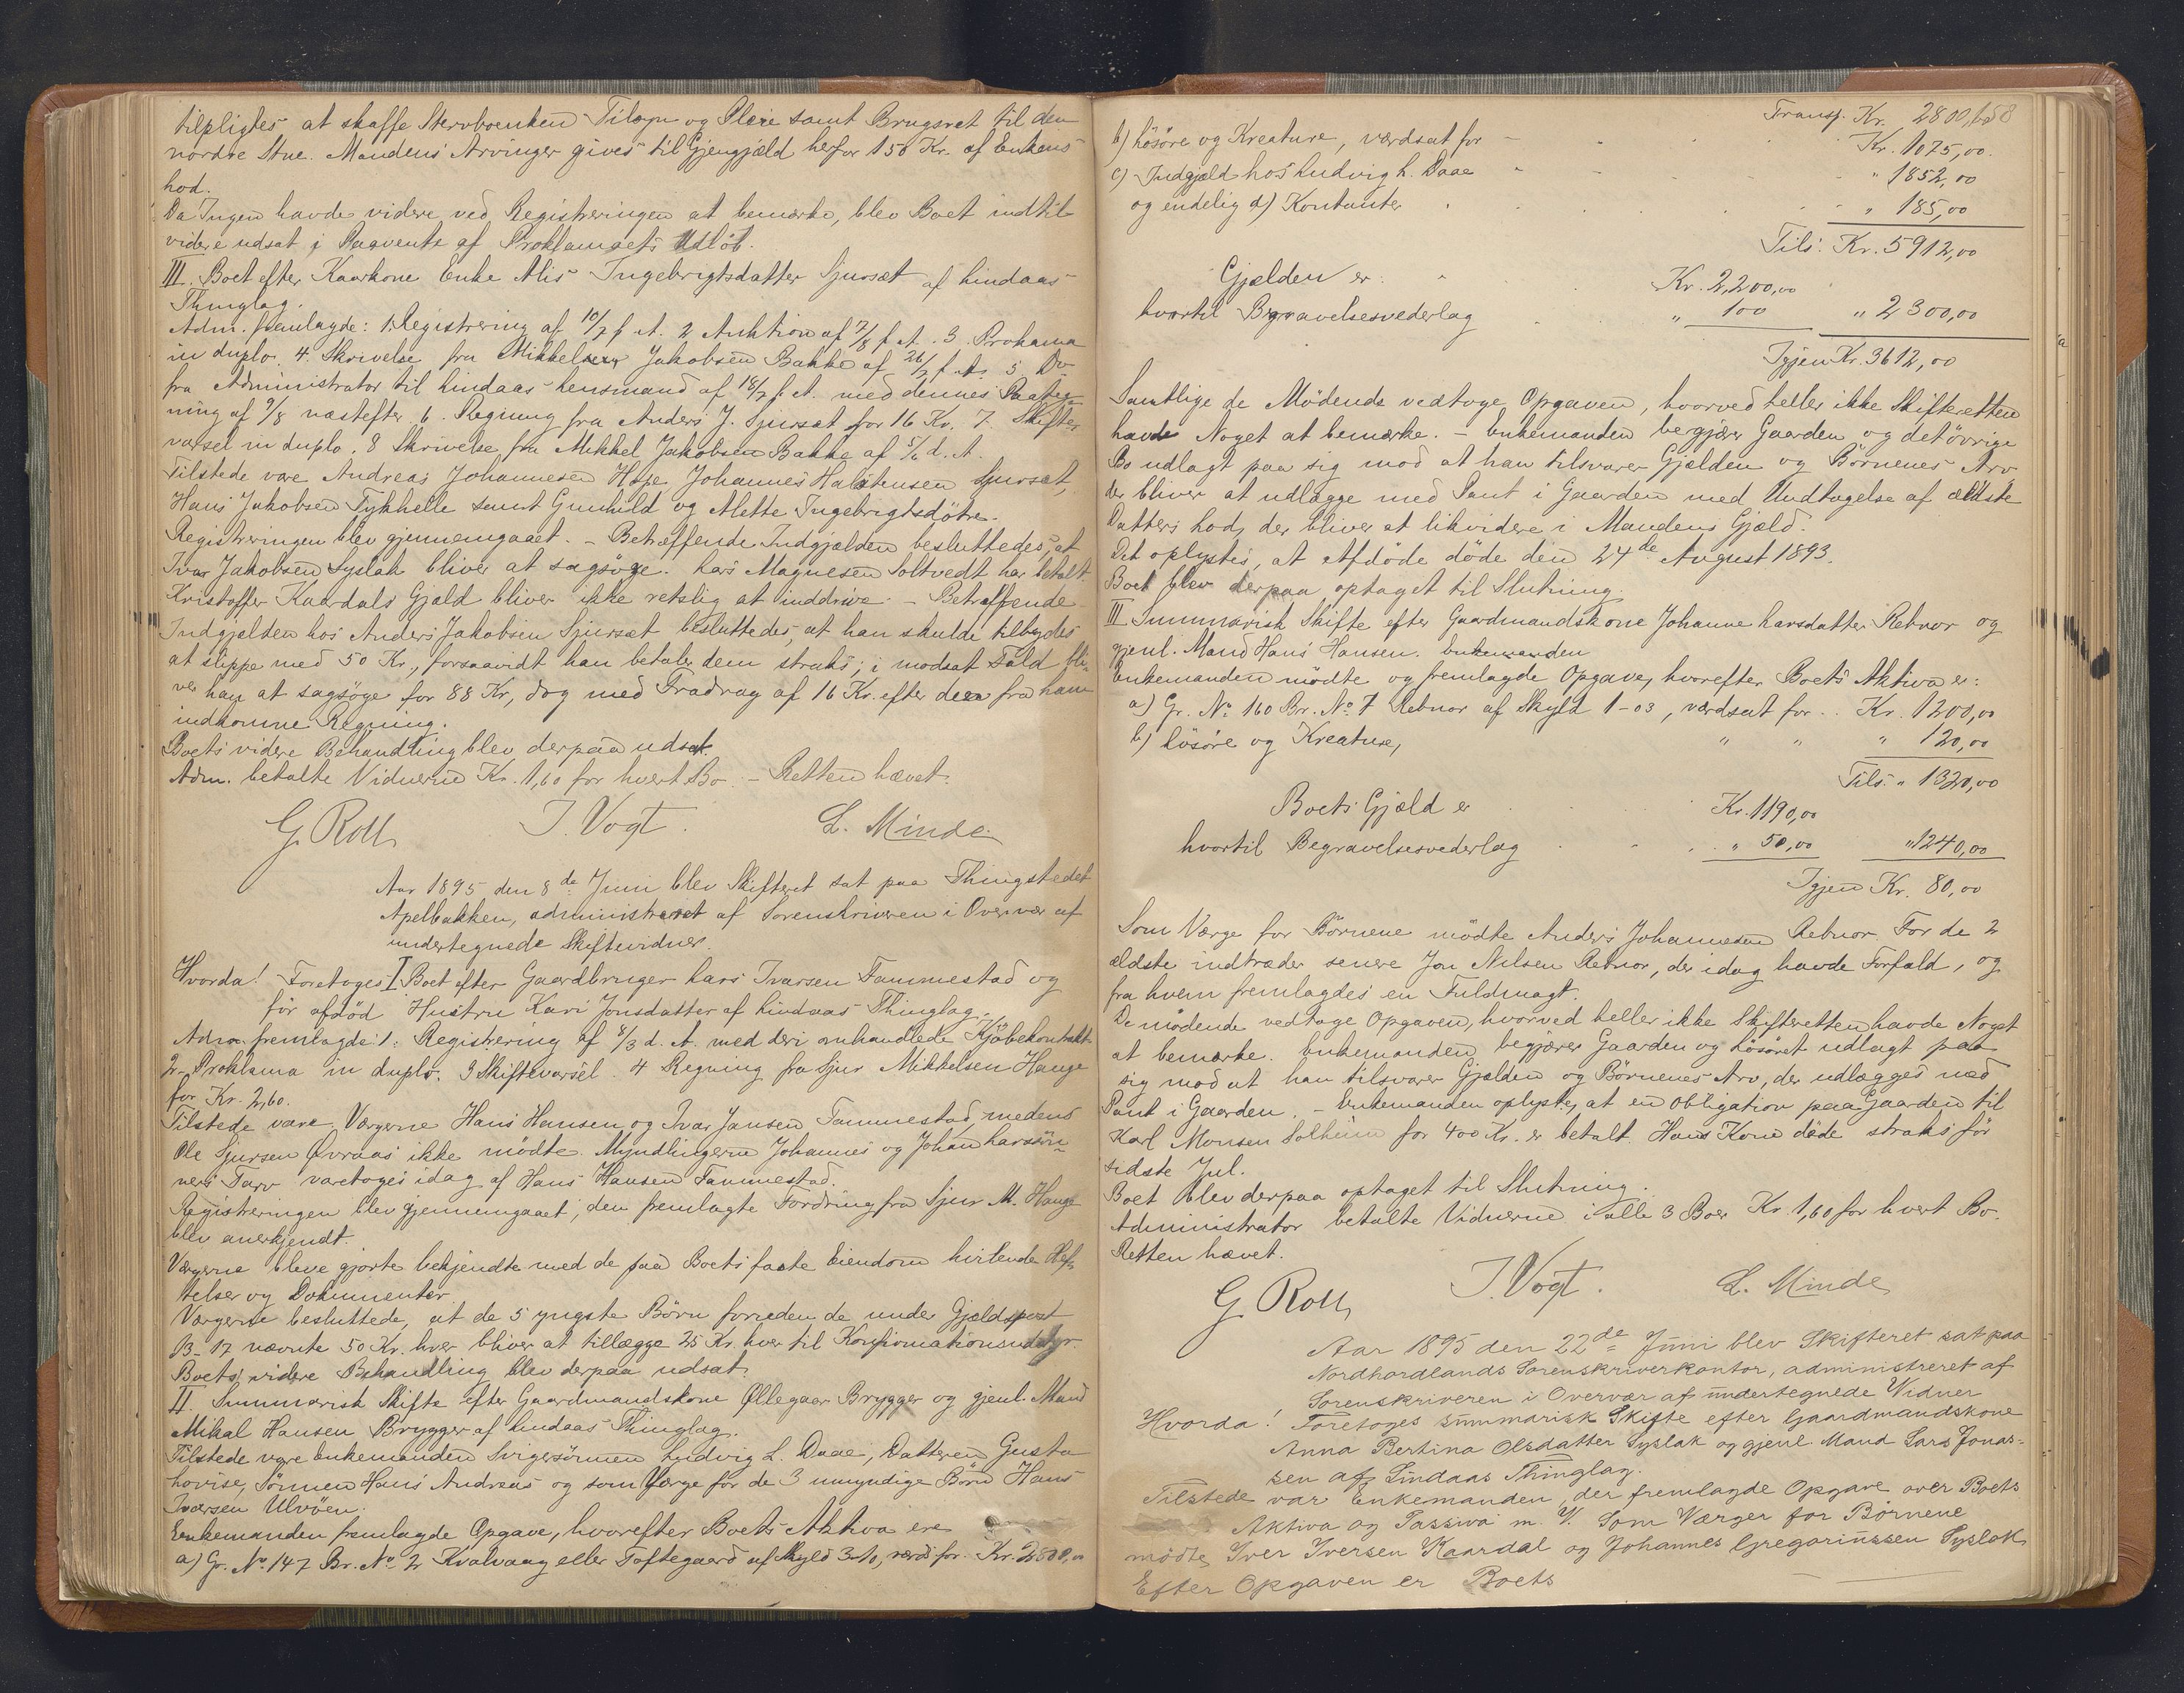 tilpligtes at skaffe Stervboenken Tilsyn og Pleie samt Brugsret til den
nordre Stue. Mandens Arvinger gives til Gjengjæld herfor 150 Kr. af Enkens
Lod.
Da Ingen havde videre ved Registreringen at bemærke, blev Boet indtil
videre udsat i Paavente af Proklamaets Udløb.
III. Boet efter Kaarkone Enke Alis Ingebrigtsdatter Sjursæt af Lindaas
Thinglag.
Adm. fremlagde: 1. Registrering af 10/7 f. A. 2 Auktion af 7/8 f. A. 3. Proklama
in duplo. 4. Skrivelse fra Mikkel Jakobsen Bakke af 26/7 f. A. 5. Do
fra Administrator til Lindaas Lensmand af 18/7 f. A. med dennes Paateg-
ning af 9/8 næstefter 6. Regning fra Anders J. Sjursæt for 16 Kr. 7. Skifte-
varsel in duplo. 8 Skrivelse fra Mikkel Jakobsen Bakke af 5/6 d. A.
Tilstede vare Andreas Johannesen Hope, Johannes Halstensen Sjursæt,
Hans Jakobsen Tykhelle samt Gunhild og Mette Ingebrigtsdøtre.
Registreringen blev gjennemgaaet. - Betræffende Indgjælden besluttedes, at
Ivar Jakobsen Syslak bliver at sagsøge. Lars Magnesen Soltvedt har betalt.
Kristoffer Kaardals Gjæld bliver ikke retslig at inddrive. - Betræffende
Indgjælden hos Anders Jakobsen Sjursæt besluttedes, at han skulde tilbydes
at slippe med 50 Kr., forsaavidt han betaler dem straks; i modsat Fald bli-
ver han at sagsøge for 88 Kr, dog med Fradrag af 16 Kr. efter den fra ham
indkomne Regning.
Boets videre Behandling blev derpaa udsat.
Adm. betalte Vidnerne Kr. 1,60 for hvert Bo. - Retten hævet.
G. Roll J. Vogt. L. Minde
Aar 1895 den 8de Juni blev Skifteret sat paa Thingstedet
Apelbakken, administreret af Sorenskriveren i Overvær af
undertegnede Skiftevidner.
Hvorda! Foretoges I. Boet efter Gaardbruger Lars Ivarsen Fammestad og
før afdød Hustru Kari Jonsdatter af Lindaas Thinglag.
Adm. fremlagde: 1. Registrering af 8/3 d. A. med deri omhandlede Kjøbekontrakt
2. Proklama in duplo. 3 Skiftevarsel. 4 Regning fra Sjur Mikkelsen Hauge
for Kr. 2,60.
Tilstede vare Værgerne Hans Hansen og Ivar Jansen Fammestad, medens
Ole Sjursen Øvraas ikke mødte. Myndlingerne Johannes og Johan Larssøn-
ners Tarv varetoges idag af Hans Hansen Fammestad.
Registreringen blev gjennemgaaet; den fremlagte Fordring fra Sjur M. Hauge
blev anerkjendt.
Værgerne bleve gjorte bekjendte med de paa Boets faste Eiendom hvilende Hef-
telser og Dokumenter.
Værgerne besluttede, at de 5 yngste Børn foruden de under Gjældspost
B-17 nævnte 50 Kr. hver bliver at tillægge 25 Kr. hver til Konfirmationsudstyr.
Boets videre Behandling blev derpaa udsat.
II. Summarisk Skifte efter Gaardmandskone Øllegaar Brygger og gjenl. Mand
Mikal Hansen Brygger af Lindaas Thinglag.
Tilstede vare Enkemanden Svigersønnen Ludvig L. Daae, Datteren Gusta
Lovise, Sønnen Hans Andreas og som Værge for de 3 umyndige Børn Hans
Iversen Ulvøen.
Enkemanden fremlagde Opgave, hvorefter Boets Aktiva ere
a) Gr. No 147 Br. No 2 Kvalvaag eller Toftegaard af Skyld 3-10, værd for Kr. 2800,00
Transp. Kr. 2800,00
b) Løsøre og Kreature, værdsat for Kr. 1075,00.
c) Indgjæld hos Ludvig L. Daae " 1852,00
og endelig d) Kontanter " 185,00
Tils. Kr. 5912,00
Gjælden er Kr. 2,200,00
hvortil Begravelsesvederlag " 100 " 2300,00
Igjen Kr. 3612,00
Samtlige de Mødende vedtoge Opgaven, hvorved heller ikke Skifteretten
havde Noget at bemærke. - Enkemanden begjærer Gaarden og det øvrige
Bo udlagt paa sig mod at han tilsvarer Gjælden og Børnenes Arv
der bliver at udlægge med Pant i Gaarden med Undtagelse af ældste
Datters Lod, der bliver at likvidere i Mandens Gjæld.
Det oplystes, at Afdøde døde den 24de August 1893.
Boet blev derpaa optaget til Slutning.
III Summarisk Skifte efter Gaardmandskone Johanne Larsdatter Rebnor og
gjenl. Mand Hans Hansen. Enkemanden
Enkemanden mødte og fremlagde Opgave, hvorefter Boets Aktiva er:
a) Gr. No 160 Br. No 7 Rebnor af Skyld 1-03, værdsat for .. Kr. 1200,00
b) Løsøre og Kreature, " " " 120,00
Tils. " 1320,00
Boets Gjæld er Kr. 1190,00
hvortil Begravelsesvederlag " 50,00 " 1240,00
Igjen Kr. 80,00
Som Værge for Børnene mødte Anders Johannesen Rebnor. For de 2
ældste indtræder senere Jon Nilsen Rebnor, der idag havde Forfald, og
fra hvem fremlagdes en Fuldmagt.
De mødende vedtoge Opgaven, hvorved heller ikke Skifteretten havde Noget
at bemærke. Enkemanden begjærer Gaarden og Løsøret udlagt paa
sig mod at han tilsvarer Gjælden og Børnenes Arv, der udlægges med
Pant i Gaarden. - Enkemanden oplyste, at en Obligation paa Gaarden til
Karl Monsen Solheim for 400 Kr. er betalt. Hans Kone døde straks før
sidste Jul.
Boet blev derpaa optaget til Slutning.
Administrator betalte Vidnerne i alle 3 Boer Kr. 1,60 for hvert Bo.
Retten hævet.
G. Roll J. Vogt. L. Minde
Aar 1895 den 22de Juni blev Skifteret sat paa
Nordhordlands Sorenskriverkontor, administreret af
Sorenskriveren i Overvær af undertegnede Vidner
Hvorda! Foretoges summarisk Skifte efter Gaardmandskone
Anna Bertina Olsdatter Syslak og gjenl. Mand Lars Jonas-
sen af Lindaas Thinglag.
Tilstede var Enkemanden, der fremlagde Opgave over Boets
Aktiva og Passiva m. V. Som Værger for Børnene
mødte Iver Iversen Kaardal og Johannes Gregoriussen Syslak
Efter Opgaven er Boets